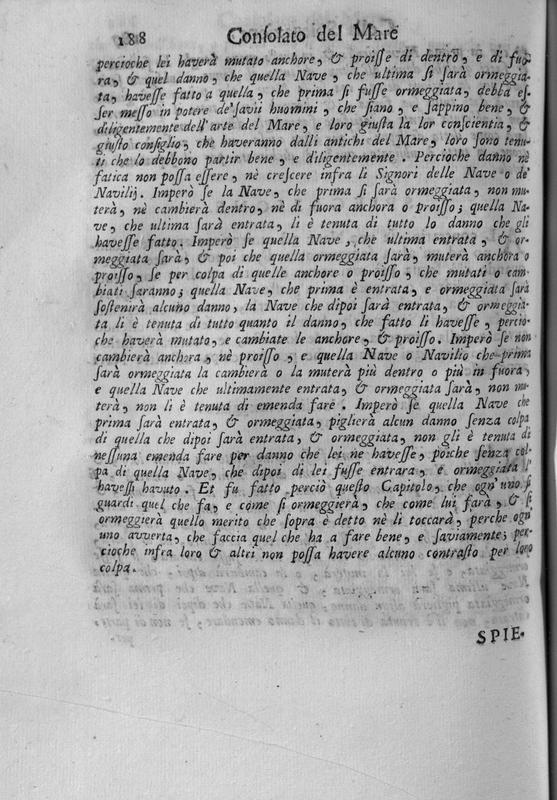 188 Consolato del Mare
percioche lei haverà mutato anchore, & proisse di dentro, e di fuo-
ra, & quel danno, che quella Nave, che ultima si sarà ormeggia-
ta, havesse fatto a quella, che prima si fusse ormeggiata, debba es-
ser messo in potere de' savii huomini, che siano, e sappino bene, &
diligentemente dell'arte del Mare, e loro giusta la lor conscientia, &
giusto consiglio, che haveranno dalli antichi del Mare, loro sono tenu-
ti che lo debbono partir bene, e diligentemente. Percioche danno nè
fatica non possa essere, nè crescere infra li Signori delle Nave o de'
Navilij. Imperò se la Nave, che prima si sarà ormeggiata, non mu-
terà, nè cambierà dentro, nè di fuora anchora o proisso; quella Na-
ve, che ultima sarà entrata, li è tenuta di tutto lo danno che gli
havesse fatto. Imperò se quella Nave, che ultima entrata, & or-
meggiata sarà, & poi che quella ormeggiata sarà, muterà anchora o
proisso, se per colpa di quelle anchore o proisso, che mutati o cam-
biati saranno; quella Nave, che prima è entrata, e ormeggiata sarà
sostenirà alcuno danno, la Nave che dipoi sarà entrata, & ormeggia-
ta li è tenuta di tutto quanto il danno, che fatto li havesse, percio-
che haverà mutato, e cambiate le anchore, & proisso. Imperò se non
cambierà anchora, nè proisso, e quella Nave o Navilio che prima
sarà ormeggiata la cambierà o la muterà più dentro o più in fuora,
e quella Nave che ultimamente entrata, & ormeggiata sarà, non mu-
terà, non li è tenuta di emenda fare. Imperò se quella Nave che
prima sarà entrata, & ormeggiata, piglierà alcun danno senza colpa
di quella che dipoi sarà entrata, & ormeggiata, non gli è tenuta di
nessuna emenda fare per danno che lei ne havesse, poiche senza col-
pa di quella Nave, che dipoi di lei fusse entrara, e ormeggiata l'
havessi havuto. Et fu fatto perciò questo Capitolo, che ogn' uno si
guardi quel che fa, e come si ormeggierà, che come lui farà, & si
ormeggierà quello merito che sopra è detto nè li toccarà, perche ogn
uno avverta, che faccia quel che ha a fare bene, e saviamente; per-
cioche infra loro & altri non possa havere alcuno contrasto per loro
colpa.
SPIE-